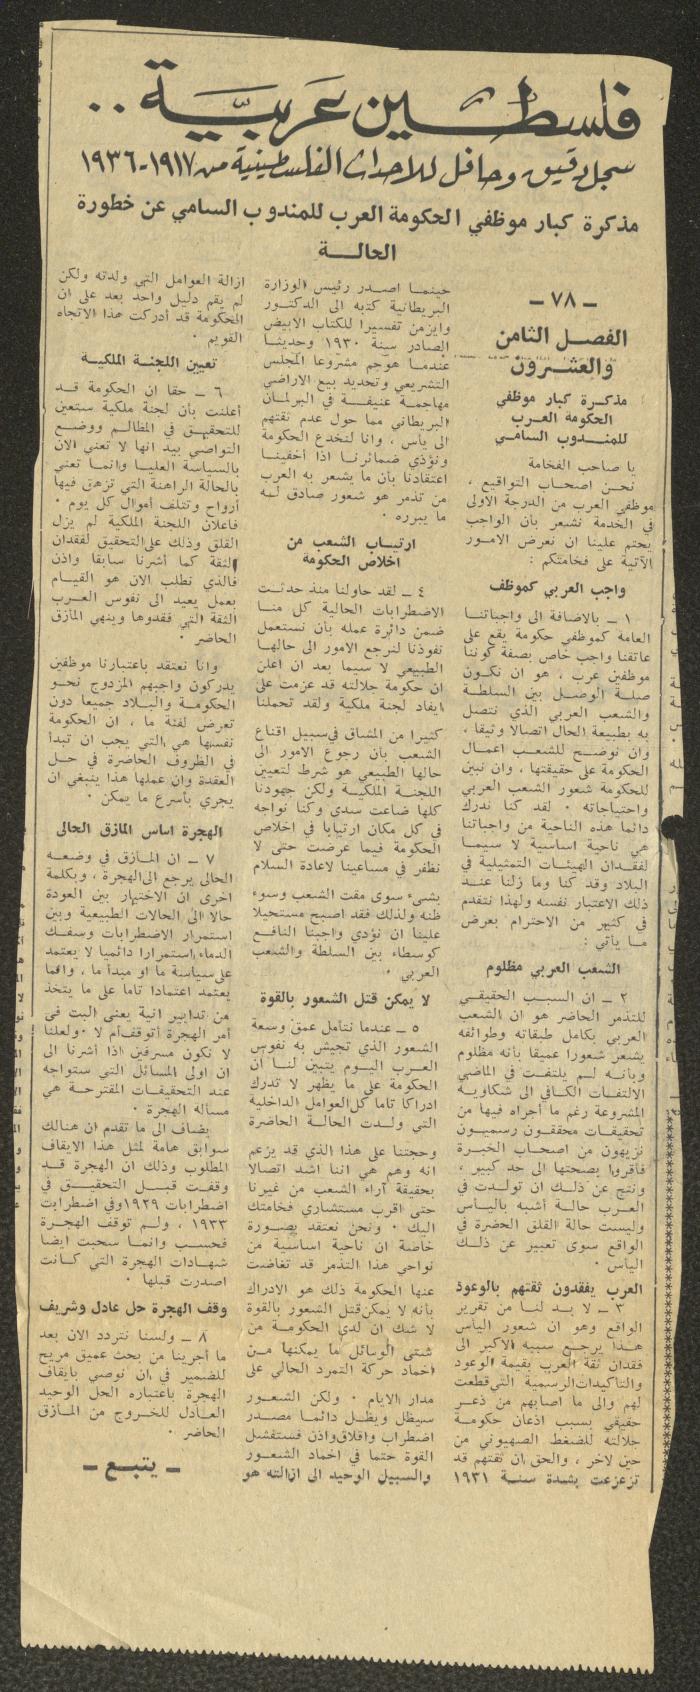 فلسطين عربية ..
سجل دقيق وحافل للاحداث الفلسطينية من ١٩١٧-١٩٣٦
مذكرة كبار موظفي الحكومة العرب للمندوب السامي عن خطورة
الحالة
- ٧٨ -
الفصل الثامن
والعشرون
مذكرة كبار موظفي
الحكومة العرب
للمندوب السامي
يا صاحب الفخامة
نحن اصحاب التواقيع ،
موظفي العرب من الدرجة الاولى
في الخدمة نشعر بأن الواجب
يحتم علينا ان نعرض الامور
الآتية على فخامتكم :
واجب العربي كموظف
١ - بالاضافة الى واجباتنا
العامة كموظفي حكومة يقع على
عاتقنا واجب خاص بصفة كوننا
موظفين عرب ، هو ان نكون
صلة الوصل بين السلطة
والشعب العربي الذي نتصل
به بطبيعة الحال اتصالا وثيقا ،
وان نوضح للشعب اعمال
الحكومة على حقيقتها ، وان نبين
للحكومة شعور الشعب العربي
واحتياجاته . لقد كنا ندرك
دائما هذه الناحية من واجباتنا
هي ناحية اساسية لا سيما
لفقدان الهيئات التمثيلية في
البلاد وقد كنا وما زلنا عند
ذلك الاعتبار نفسه ولهذا نتقدم
في كثير من الاحترام بعرض
ما يأتي :
الشعب العربي مظلوم
٢ - ان السبب الحقيقي
للتذمر الحاضر هو ان الشعب
العربي بكامل طبقاته وطوائفه
يشعر شعورا عميقا بأنه مظلوم
وبأنه لم يلتفت في الماضي
الالتفات الكافي الى شكاويه
المشروعة رغم ما أجراه فيها من
تحقيقات محققون رسميون
نزيهون من اصحاب الخبرة
فأقروا بصحتها الى حد كبير ،
ونتج عن ذلك ان تولدت في
العرب حالة أشبه باليأس
وليست حالة القلق الحضرة في
الواقع سوى تعبير عن ذلك
اليأس .
العرب يفقدون ثقتهم بالوعود
٣ - لا بد لنا من تقرير
الواقع وهو ان شعور اليأس
هذا يرجع سببه الاكبر الى
فقدان ثقة العرب بقيمة الوعود
والتاكيدات الرسمية التي قطعت
لهم والى ما اصابهم من ذعر
حقيقي بسبب اذعان حكومة
جلالته للضغط الصهيوني من
حين لآخر ، والحق ان ثقتهم قد
تزعزعت بشدة سنة ١٩٣١
حينما اصدر رئيس الوزارة
البريطانية كتبه الى الدكتور
وايزمن تفسيرا للكتاب الابيض
الصادر سنة ١٩٣٠ وحديثا
عندما هوجم مشروعا المجلس
التشريعي وتحديد بيع الاراضي
مهاجمة عنيفة في البرلمان
البريطاني مما حول عدم ثقتهم
الى يأس ، وانا لنخدع الحكومة
ونؤذي ضمائرنا اذا أخفينا
اعتقادنا بأن ما يشعر به العرب
من تذمر هو شعور صادق له
ما يبرره .
ارتياب الشعب من
اخلاص الحكومة
٤ - لقد حاولنا منذ حدثت
الاضطرابات الحالية كل منا
ضمن دائرة عمله بأن نستعمل
نفوذنا لنرجع الامور الى حالها
الطبيعي لا سيما بعد ان اعلن
ان حكومة جلالته قد عزمت على
ايفاد لجنة ملكية ولقد تحملنا
كثيرا من المشاق في سبيل اقناع
الشعب بأن رجوع الامور الى
حالها الطبيعي هو شرط لتعيين
اللجنة الملكية ولكن جهودنا
كلها ضاعت سدى وكنا نواجه
في كل مكان ارتيابا في اخلاص
الحكومة فيما عرضت حتى لا
نظفر في مساعينا لاعادة السلام
بشيء سوى مقت الشعب وسوء
ظنه ولذلك فقد اصبح مستحيلا
علينا ان نؤدي واجبنا النافع
كوسطاء بين السلطة والشعب
العربي .
لا يمكن قتل الشعور بالقوة
٥ - عندما نتأمل عمق وسعة
الشعور الذي تجيش به نفوس
العرب اليوم يتبين لنا ان
الحكومة على ما يظهر لا تدرك
ادراكا تاما كل العوامل الداخلية
التي ولدت الحالة الحاضرة
وحجتنا على هذا الذي قد يزعم
انه وهم هي اننا اشد اتصالا
بحقيقة آراء الشعب من غيرنا
حتى اقرب مستشاري فخامتك
اليك . ونحن نعتقد بصورة
خاصة ان ناحية اساسية من
نواحي هذا التذمر قد تغاضت
عنها الحكومة ذلك هو الادراك
بأنه لا يمكن قتل الشعور بالقوة
لا شك ان لدى الحكومة من
شتى الوسائل ما يمكنها من
اخماد حركة التمرد الحالي على
مدار الايام . ولكن الشعور
سيظل ويظل دائما مصدر
اضطراب واقلاق واذن فستفشل
القوة حتما في اخماد الشعور
والسبيل الوحيد الى ازالته هو
ازالة العوامل التي ولدته ولكن
لم يقم دليل واحد بعد على ان
الحكومة قد أدركت هذا الاتجاه
القويم .
تعيين اللجنة الملكية
٦ - حقا ان الحكومة قد
أعلنت بأن لجنة ملكية ستعين
للتحقيق في المظالم ووضع
التواصي بيد انها لا تعني الآن
بالسياسة العليا وانما تعني
بالحالة الراهنة التي تزهق فيها
أرواح وتتلف أموال كل يوم .
فاعلان اللجنة الملكية لم يزل
القلق وذلك على التحقيق لفقدان
الثقة كما أشرنا سابقا واذن
فالذي نطلب الان هو القيام
بعمل يعيد الى نفوس العرب
الثقة التي فقدوها وينهي المأزق
الحاضر .
وانا نعتقد باعتبارنا موظفين
يدركون واجبهم المزدوج نحو
الحكومة والبلاد جميعا دون
تعرض لفئة ما ، ان الحكومة
نفسها هي التي يجب ان تبدأ
في الظروف الحاضرة في حل
العقدة وان عملها هذا ينبغي ان
يجري بأسرع ما يمكن .
الهجرة اساس المأزق الحالي
٧ - ان المأزق في وضعه
الحالي يرجع الى الهجرة ، وبكلمة
اخرى ان الاختيار بين العودة
حالا الى الحالات الطبيعية وبين
استمرار الاضطرابات وسفك
الدماء استمرارا دائميا لا يعتمد
على سياسة ما او مبدأ ما ، وانما
يعتمد اعتمادا تاما على ما يتخذ
من تدابير آنية يعنى البت في
أمر الهجرة أتوقف أم لا . ولعلنا
لا نكون مسرفين اذا أشرنا الى
ان اولى المسائل التي ستواجه
عند التحقيقات المقترحة هي
مسألة الهجرة .
يضاف الى ما تقدم ان هنالك
سوابق هامة لمثل هذا الايقاف
المطلوب وذلك ان الهجرة قد
وقفت قبل التحقيق في
اضطرابات ١٩٢٩ وفي اضطرابات
١٩٣٣ ، ولم توقف الهجرة
فحسب وانما سحبت ايضا
شهادات الهجرة التي كانت
اصدرت قبلها .
وقف الهجرة حل عادل وشريف
٨ - ولسنا نتردد الان بعد
ما أجرينا من بحث عميق مريح
للضمير في ان نوصي بايقاف
الهجرة باعتباره الحل الوحيد
العادل للخروج من المأزق
الحاضر .
- يتبع -